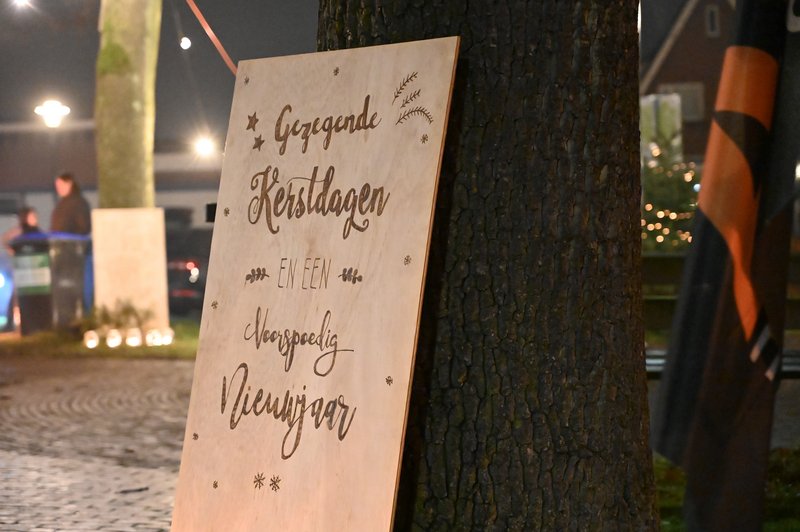 Gezegende
Kerstdagen
EN EEN
Voorspoedig
Nieuwjaar